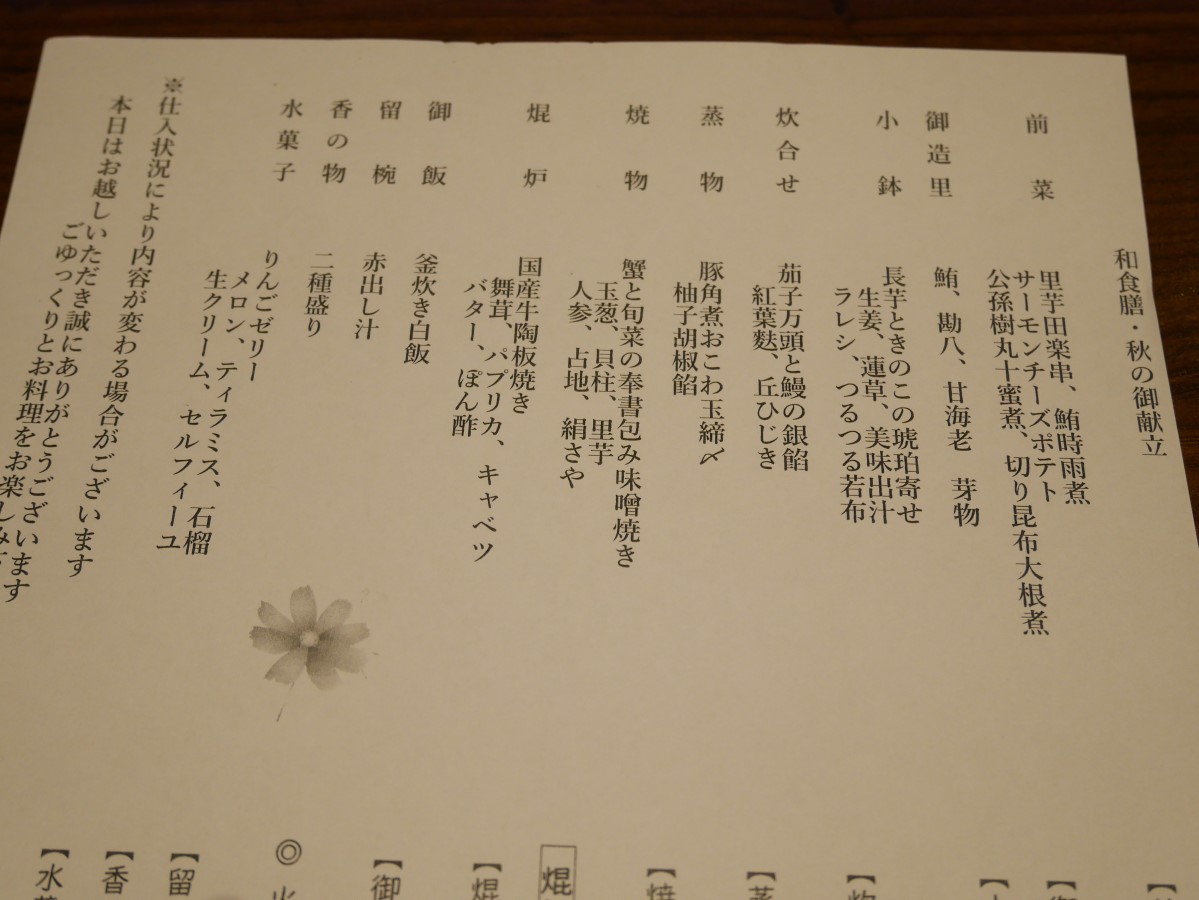 和食膳・秋の御献立
前菜
里芋田楽串、鮪時雨煮
サーモンチーズポテト
公孫樹丸十蜜煮、切り昆布大根煮
御造里
鮪、勘八、甘海老　芽物
小鉢
長芋ときのこの琥珀寄せ
生姜、蓮草、美味出汁
ラレシ、つるつる若布
炊合せ
茄子万頭と鰻の銀餡
紅葉麩、丘ひじき
蒸物
豚角煮おこわ玉締〆
柚子胡椒餡
焼物
蟹と旬菜の奉書包み味噌焼き
玉葱、貝柱、里芋
人参、占地、絹さや
焜炉
国産牛陶板焼き
舞茸、パプリカ、キャベツ
バター、ぽん酢
御飯
釜炊き白飯
留椀
赤出し汁
香の物
二種盛り
水菓子
りんごゼリー
メロン、ティラミス、石榴
生クリーム、セルフィーユ
※仕入状況により内容が変わる場合がございます
本日はお越しいただき誠にありがとうございます
ごゆっくりとお料理をお楽しみ
【御
【焼
焜
【焜
【御
◎
【留
【香
【水